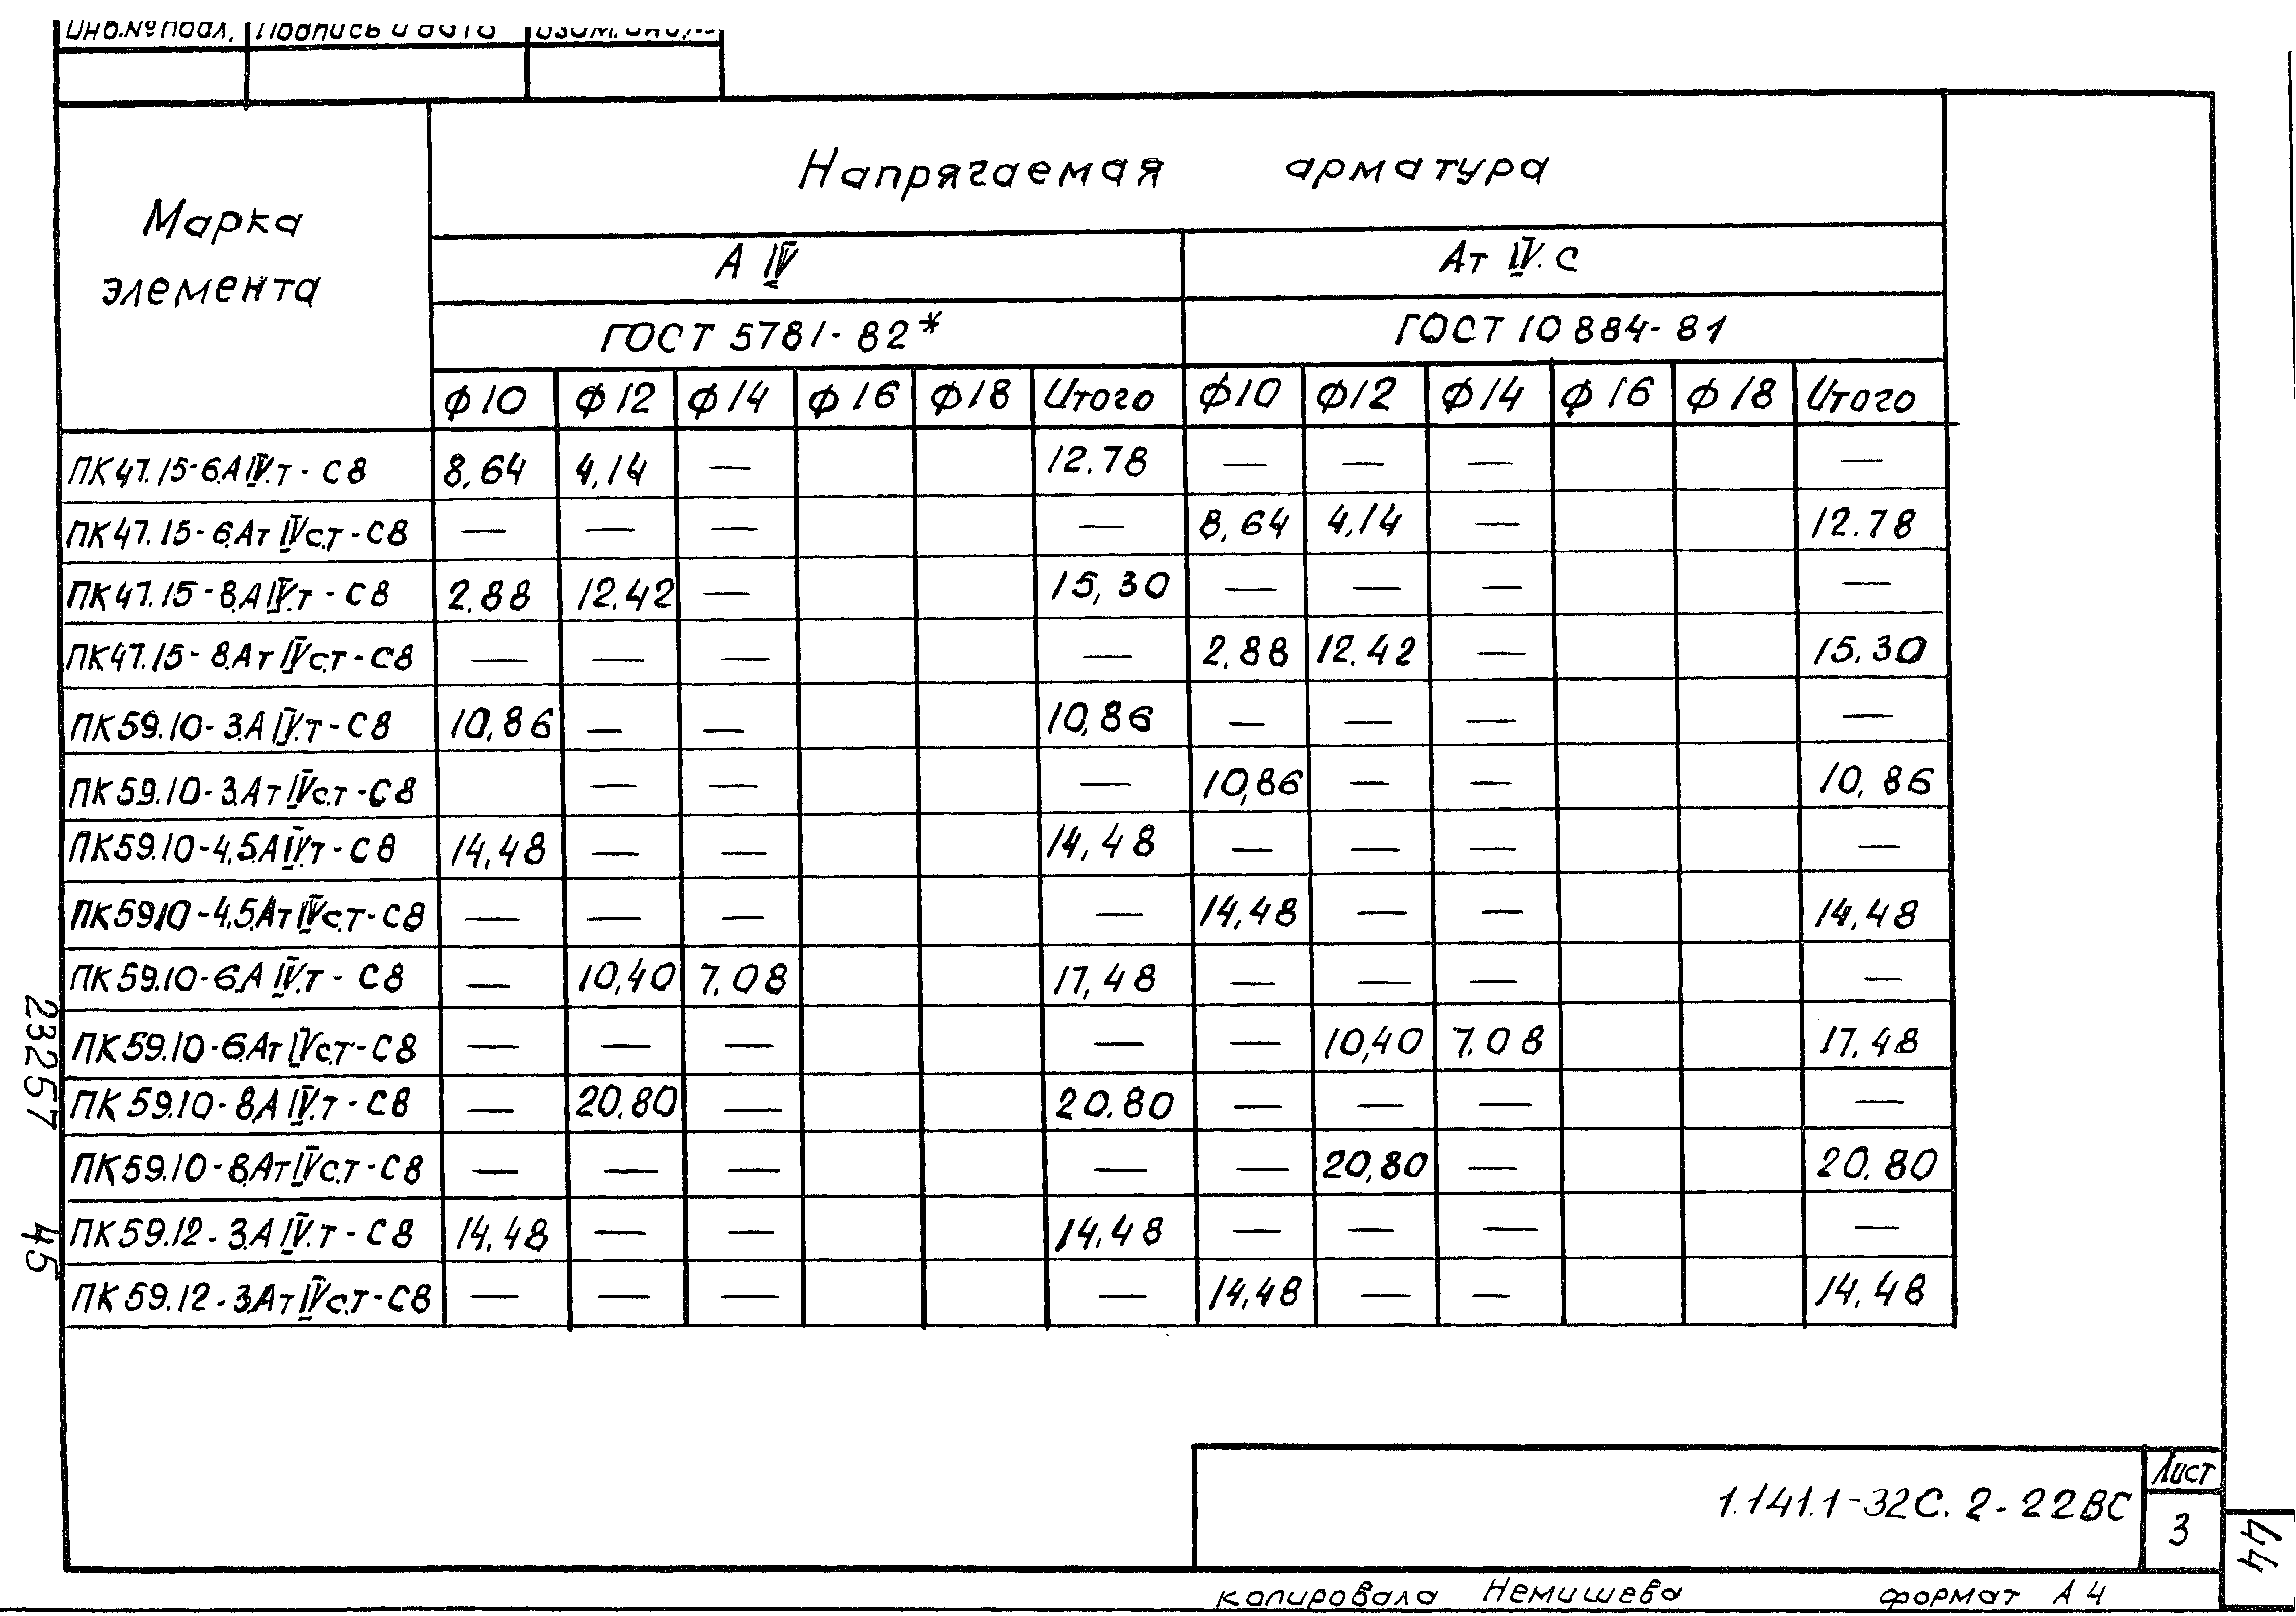 Инв.№ подл. Подпись и дата Взам. инв.№
Марка элемента
Напрягаемая арматура
А IV Ат IV.С
ГОСТ 5781-82* ГОСТ 10884-81
Ф10 Ф12 Ф14 Ф16 Ф18 Итого Ф10 Ф12 Ф14 Ф16 Ф18 Итого
ПК47.15-6.АIV.т-С8 8,64 4,14 — 12.78 — — — —
ПК47.15-6.АтIVс.т-С8 — — — — 8,64 4,14 — 12.78
ПК47.15-8.АIV.т-С8 2.88 12.42 — 15,30 — — — —
ПК47.15-8.АтIVс.т-С8 — — — — 2,88 12.42 — 15.30
ПК59.10-3.АIV.т-С8 10,86 — — 10,86 — — — —
ПК59.10-3.АтIVс.т-С8 — — — 10,86 — — 10,86
ПК59.10-4,5.АIV.т-С8 14,48 — — 14,48 — — — —
ПК59.10-4,5.АтIVс.т-С8 — — — — 14,48 — — 14,48
ПК59.10-6.АIV.т-С8 — 10,40 7.08 17,48 — — — —
ПК59.10-6.АтIVс.т-С8 — — — — — 10,40 7.08 17.48
ПК59.10-8.АIV.т-С8 — 20.80 — 20.80 — — — —
ПК59.10-8.АтIVс.т-С8 — — — — — 20,80 — 20.80
ПК59.12-3.АIV.т-С8 14.48 — — 14.48 — — — —
ПК59.12-3.АтIVс.т-С8 — — — — 14,48 — — 14.48
23257 45
1.141.1-32С.2-22ВС
Лист
3
44
копировала Немишева формат А4